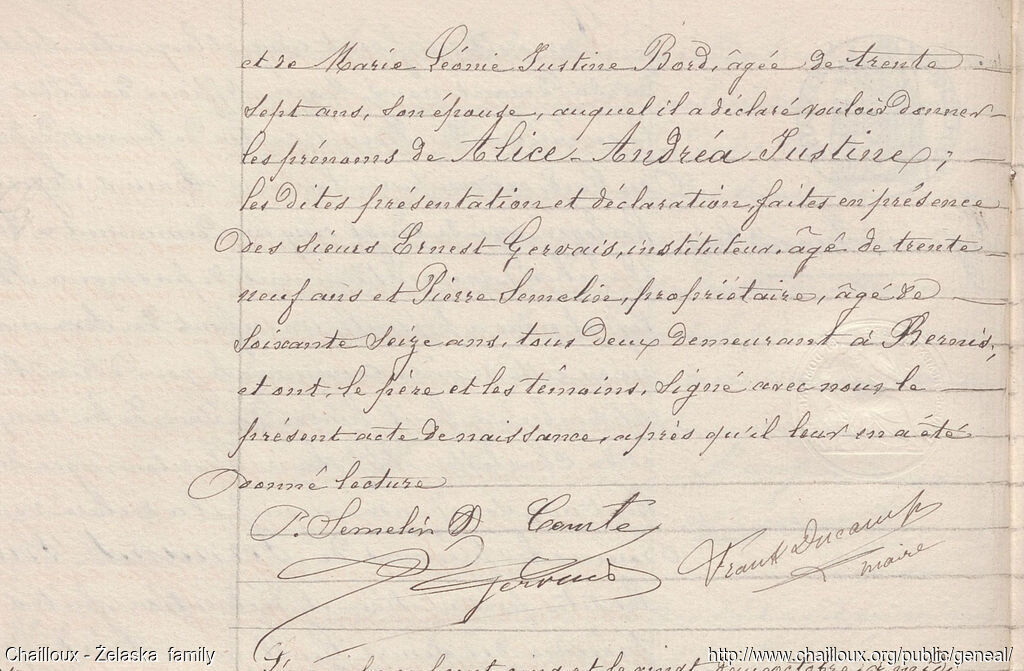 et de Marie Léonie Justine Bord, âgée de trente
sept ans, son épouse, auquel il a déclaré vouloir donner
les prénoms de Alice Andréa Justine;
les dites présentation et déclaration, faites en présence
des sieurs Ernest Gervais, instituteur, âgé de trente
neuf ans et Pierre Semelin, propriétaire, âgé de
soixante seize ans, tous deux demeurant à Bernis,
et ont, le père et les témoins, signé avec nous le
présent acte de naissance, après qu'il leur en a été
donné lecture
P. Semelin Comte
Gervais Ducamp
maire
Chailloux - Żelaska family http://www.chailloux.org/public/geneal/